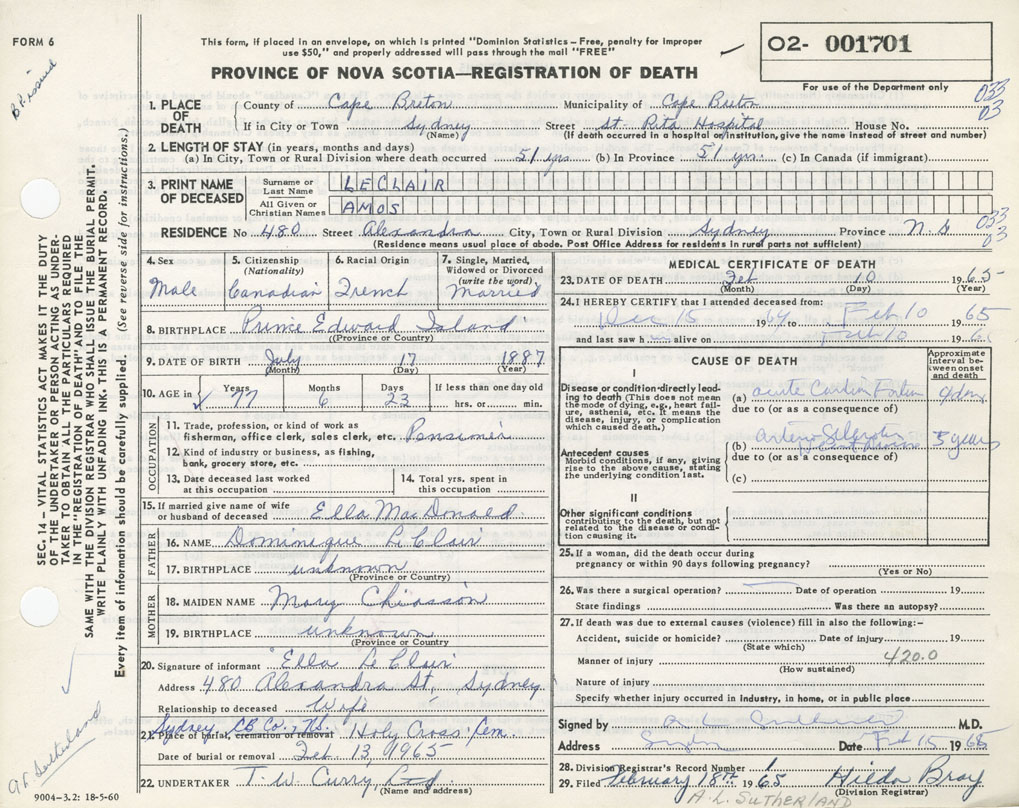 FORM 6
This form, if placed in an envelope, on which is printed "Dominion Statistics – Free, penalty for improper
use $50," and properly addressed will pass through the mail "FREE"
02- 001701
For use of the Department only
PROVINCE OF NOVA SCOTIA—REGISTRATION OF DEATH
B.P. issued
033
03
1. PLACE OF DEATH
County of Cape Breton Municipality of Cape Breton
If in City or Town Sydney Street St. Rita Hospital House No.
(Name) (If death occurred in a hospital or institution, give the name instead of street and number)
2. LENGTH OF STAY (in years, months and days)
(a) In City, Town or Rural Division where death occurred 51 yrs. (b) In Province 51 yrs. (c) In Canada (if immigrant)
3. PRINT NAME OF DECEASED
Surname or Last Name LECLAIR
All Given or Christian Names AMOS
RESIDENCE No 480 Street Alexandra City, Town or Rural Division Sydney Province N.S
033
03
(Residence means usual place of abode. Post Office Address for residents in rural parts not sufficient)
4. Sex
Male
5. Citizenship
(Nationality)
Canadian
6. Racial Origin
French
7. Single, Married,
Widowed or Divorced
(write the word)
Married
8. BIRTHPLACE Prince Edward Island
(Province or Country)
9. DATE OF BIRTH July 17 1887
(Month) (Day) (Year)
10. AGE in Years 77 Months 6 Days 23 If less than one day old
hrs. or min.
OCCUPATION
11. Trade, profession, or kind of work as
fisherman, office clerk, sales clerk, etc. Pensioner
12. Kind of industry or business, as fishing,
bank, grocery store, etc.
13. Date deceased last worked
at this occupation
14. Total yrs. spent in
this occupation
15. If married give name of wife
or husband of deceased Ella MacDonald
FATHER
16. NAME Dominique LeClair
17. BIRTHPLACE unknown
(Province or Country)
MOTHER
18. MAIDEN NAME Mary Chiasson
19. BIRTHPLACE unknown
(Province or Country)
20. Signature of informant Ella LeClair
Address 480 Alexandra St, Sydney
Relationship to deceased Wife
Sydney, CB Co., N.S.
21. Place of burial, cremation or removal Holy Cross Cem.
Date of burial or removal Feb 13, 1965
22. UNDERTAKER T. W. Curry, Ltd.
(Name and address)
MEDICAL CERTIFICATE OF DEATH
23. DATE OF DEATH Feb 10 1965
(Month) (Day) (Year)
24. I HEREBY CERTIFY that I attended deceased from:
Dec 15 1964 to Feb 10 1965
and last saw h alive on Feb 10 196
CAUSE OF DEATH
Approximate interval between onset and death
I
Disease or condition directly leading to death (This does not mean the mode of dying, e.g., heart failure, asthenia, etc. It means the disease, injury, or complication which caused death.)
(a) acute
due to (or as a consequence of)
Antecedent causes
Morbid conditions, if any, giving rise to the above cause, stating the underlying condition last.
(b) 5 years
due to (or as a consequence of)
(c)
II
Other significant conditions
contributing to the death, but not related to the disease or condition causing it.
25. If a woman, did the death occur during
pregnancy or within 90 days following pregnancy?
(Yes or No)
26. Was there a surgical operation? Date of operation 19
State findings Was there an autopsy?
27. If death was due to external causes (violence) fill in also the following:–
Accident, suicide or homicide? Date of injury 19
(State which)
Manner of injury 420.0
(How sustained)
Nature of injury
Specify whether injury occurred in industry, in home, or in public place
Signed by A L Sutherland M.D.
Address Sydney Date Feb 15 1965
28. Division Registrar's Record Number 1
29. Filed February 18th 1965 Hilda Bray
(Division Registrar)
A.L. SUTHERLAND
SEC. 14 – VITAL STATISTICS ACT MAKES IT THE DUTY
OF THE UNDERTAKER OR PERSON ACTING AS UNDER-
TAKER TO OBTAIN ALL THE PARTICULARS REQUIRED
IN THE "REGISTRATION OF DEATH" AND TO FILE THE
SAME WITH THE DIVISION REGISTRAR WHO SHALL ISSUE THE BURIAL PERMIT.
WRITE PLAINLY WITH UNFADING INK. THIS IS A PERMANENT RECORD.
Every item of information should be carefully supplied. (See reverse side for instructions.)
A L Sutherland
9004-3.2: 18-5-60